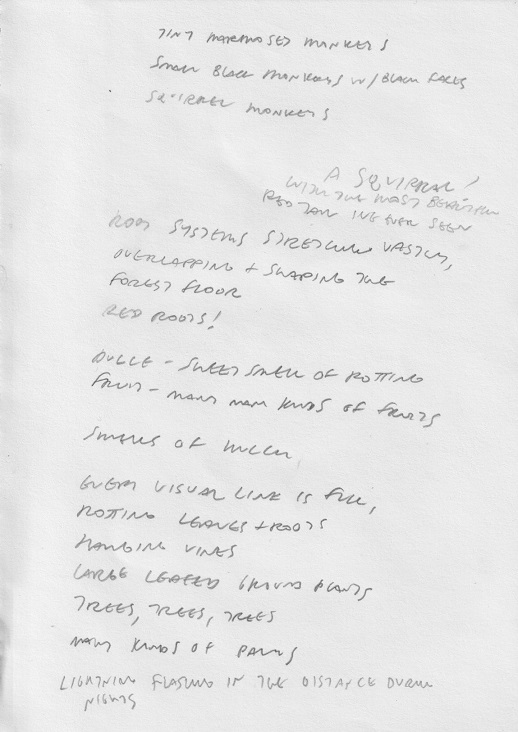 TINY MARMOSET MONKEYS
SMALL BLACK MONKEYS W/BLACK FACES
SQUIRREL MONKEYS
A SQUIRRAL!
WITH THE MOST BEAUTIFUL
RED TAIL IVE EVER SEEN
ROOT SYSTEMS STRETCHING VASTLY,
OVERLAPPING + SHAPING THE
FOREST FLOOR
RED ROOTS!
DULCE - SWEET SMELL OF ROTTING
FRUIT - MANY MANY KINDS OF FRUITS
SMELLS OF
EVERY VISUAL LINE IS FULL,
ROTTING LEAVES + ROOTS
HANGING VINES
LARGE LEAFED GROUND PLANTS
TREES, TREES, TREES
MANY KINDS OF PALMS
LIGHTNING FLASHING IN THE DISTANCE DURING
NIGHTS